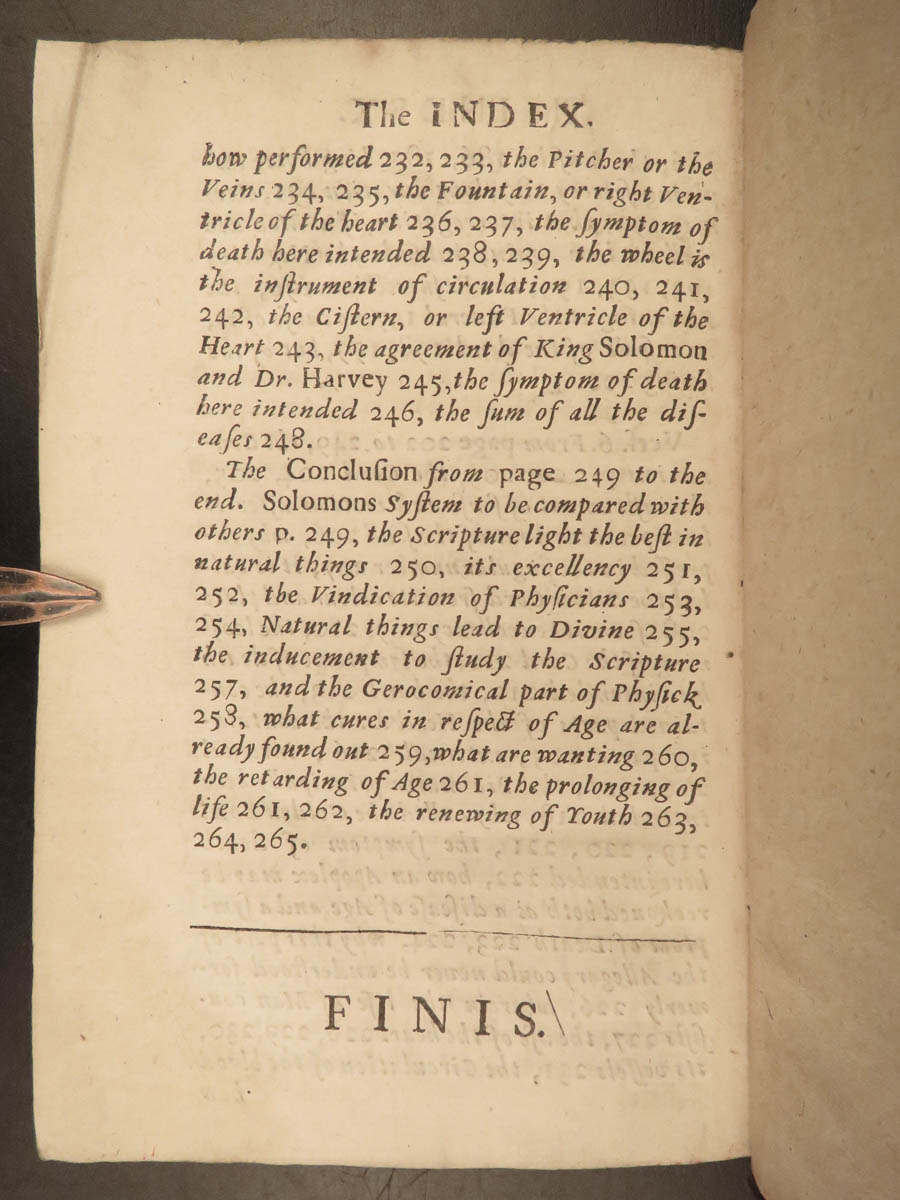 The INDEX.
how performed 232, 233, the Pitcher or the
Veins 234, 235, the Fountain, or right Ven-
tricle of the heart 236, 237, the ſymptom of
death here intended 238, 239, the wheel is
the inſtrument of circulation 240, 241,
242, the Ciſtern, or left Ventricle of the
Heart 243, the agreement of King Solomon
and Dr. Harvey 245, the ſymptom of death
here intended 246, the ſum of all the diſ-
eaſes 248.
The Concluſion from page 249 to the
end. Solomons Syſtem to be compared with
others p. 249, the Scripture light the beſt in
natural things 250, its excellency 251,
252, tbe Vindication of Phyſicians 253,
254, Natural things lead to Divine 255,
the inducement to ſtudy the Scripture
257, and the Gerocomical part of Phyſick
258, what cures in reſpect of Age are al-
ready found out 259, what are wanting 260,
the retarding of Age 261, the prolonging of
life 261, 262, the renewing of Youth 263,
264, 265.
FINIS.